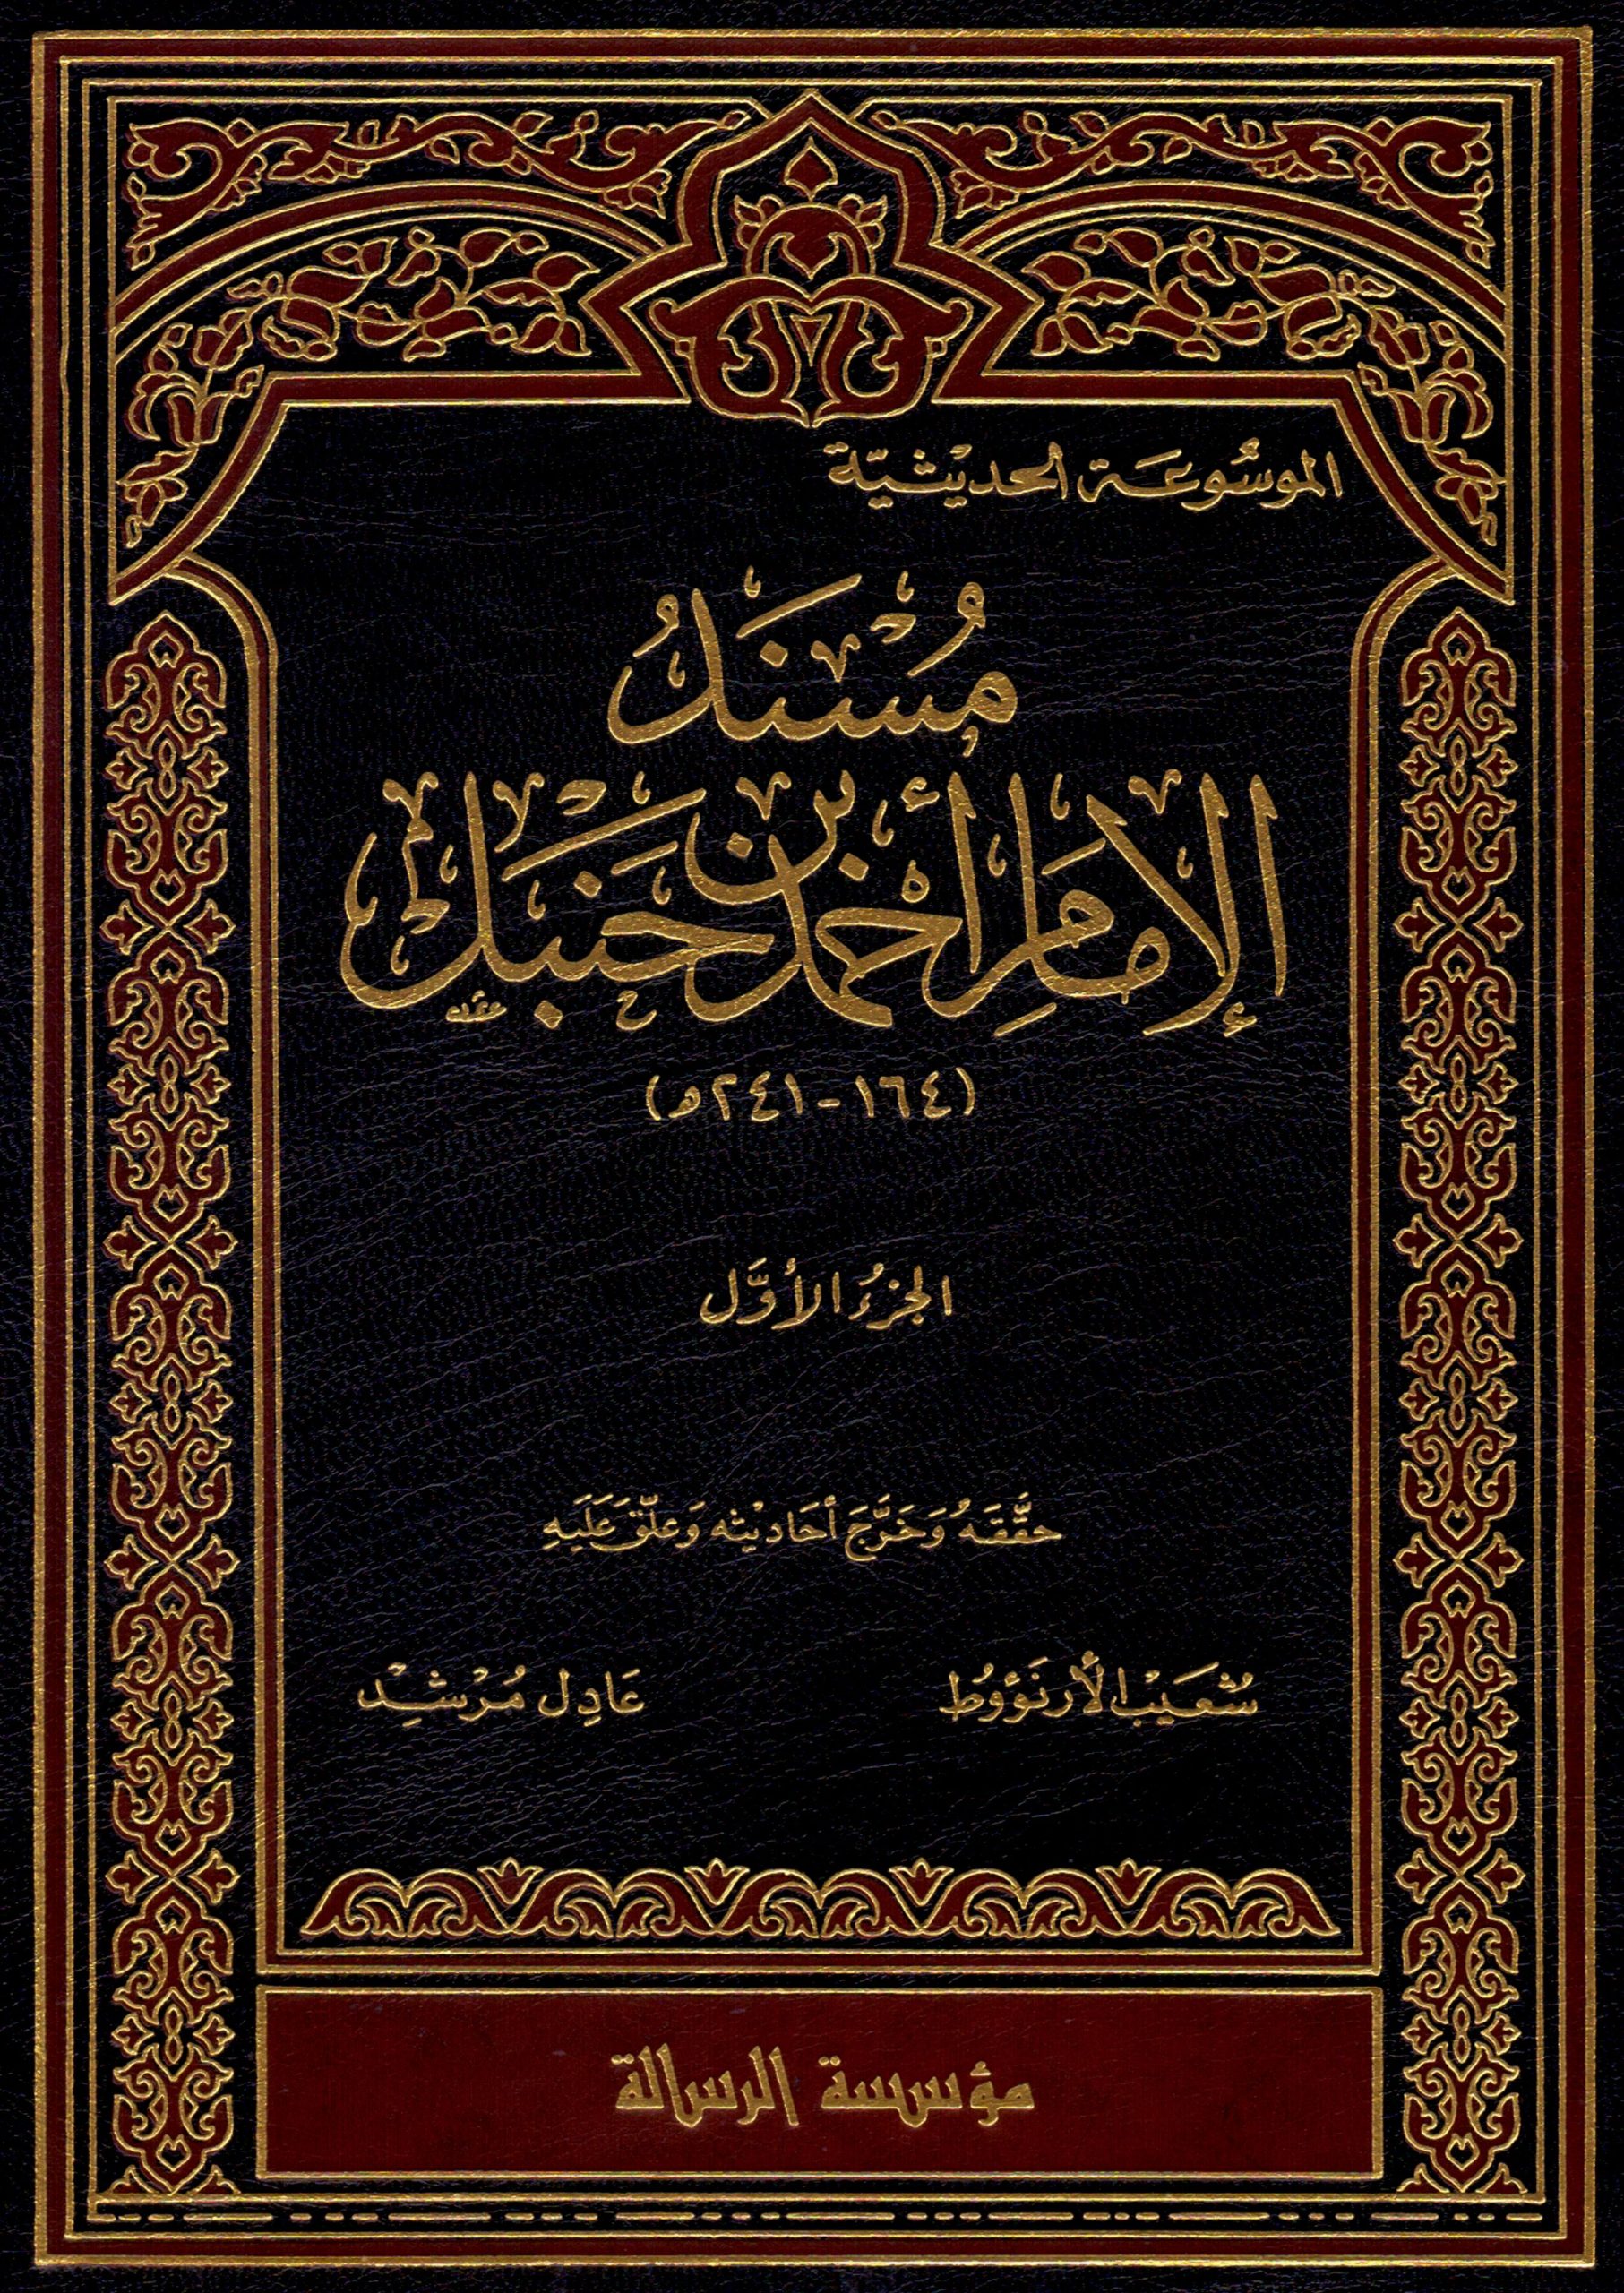 الموسُوعَة الحديْثيّة
مُسْنَدُ
الإمَامِ أَحْمَد بْن حَنْبَل
(١٦٤ - ٢٤١ هـ)
الجزءُ الأوَّل
حقَّقَهُ وَخَرَّجَ أحَاديْثه وَعَلّقَ عَلَيهِ
شُعَيْب الأرنَؤوُط
عَادِل مُرْشِدْ
مؤسسة الرسالة